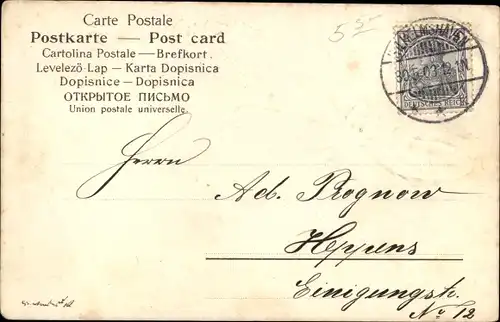 Carte Postale
Postkarte — Post card
Cartolina Postale — Brefkort.
Levelező-Lap — Karta Dopisnica
Dopisnice — Dopisnica
ОТКРЫТОЕ ПИСЬМО
Union postale universelle.
WILHELMSHAVEN
DEUTSCHES REICH
Herrn
Ad. Rognow
Heppens
Einigungstr.
No 12